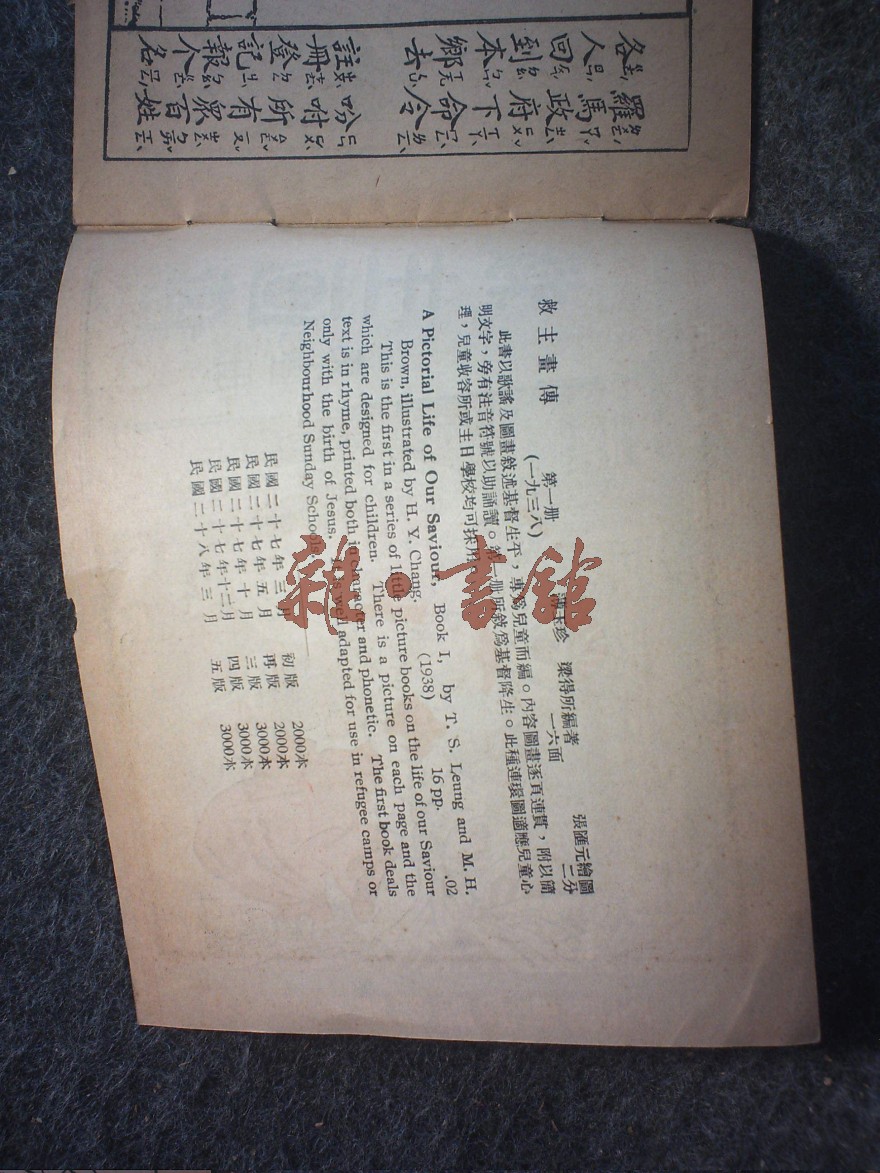 羅馬政府下命令
吩咐所有眾百姓
各人回到本鄉去
註冊登記報介名
救主畫傳 第一册 珍 梁得所編著 張匯元繪圖
(一九三八) 一六面 二分
此書以歌謠及圖畫敘述基督生平，專爲兒童而編。內容圖畫逐頁連貫，附以簡
明文字，旁有注音符號以助誦讀。第一册所敘爲基督降生。此種連環圖適應兒童心
理，兒童收容所或主日學校均可採用
A Pictorial Life of Our Saviour, Book I, by T. S. Leung and M. H.
Brown, illustrated by H. Y. Chang. (1938) 16 pp. .02
This is the first in a series of little picture books on the life of our Saviour
which are designed for children. There is a picture on each page and the
text is in rhyme, printed both in character and phonetic. The first book deals
only with the birth of Jesus. It is well adapted for use in refugee camps or
Neighbourhood Sunday Schools.
民國二十七年三月 初版 2000本
民國二十七年五月 再版 2000本
民國二十七年十月 三版 3000本
民國二十七年十二月 四版 3000本
民國二十八年三月 五版 3000本
雜·書館